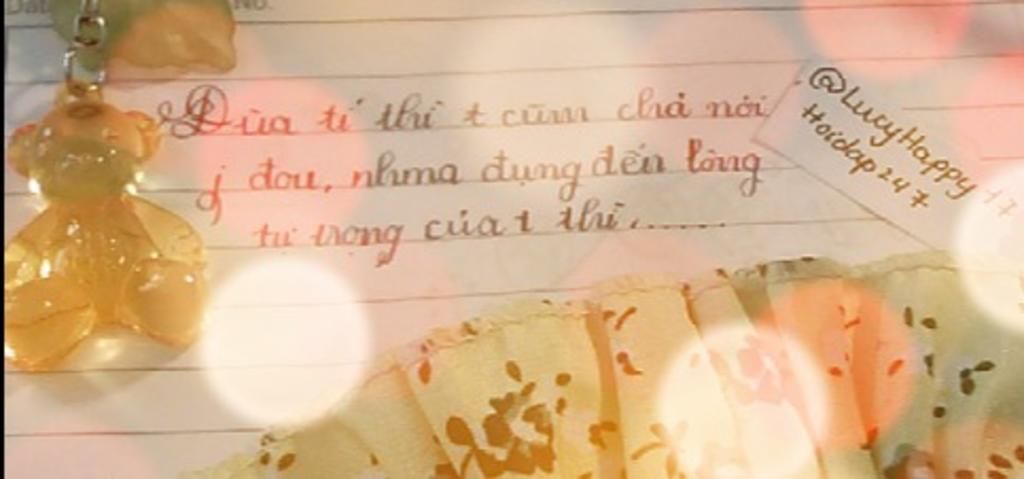 No.
Đùa tí thì t cũm chả nói
j đou, nhma đụng đến lòng
tự trọng của t thì.......
@LucyHappy
Hoidap247